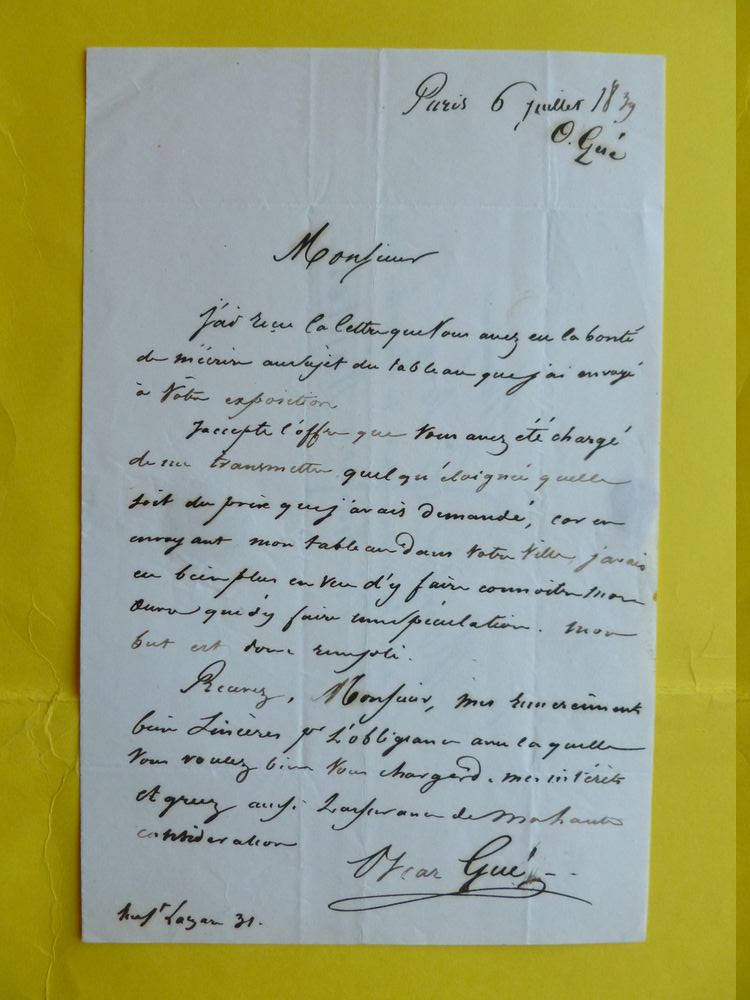 Paris 6 juillet 1839
O. Gué
Monsieur
J'ai reçu la lettre que Vous avez eu la bonté
de m'écrire au sujet du tableau que j'ai envoyé
à Votre exposition
J'accepte l'offre que Vous avez été chargé
de me transmettre quelqu'éloignée quelle
soit du prix que j'avais demandé, car en
envoyant mon tableau dans Votre Ville, j'avais
eu bien plus en vue d'y faire connoitre mon
Œuvre que d'y faire une spéculation. mon
but est donc rempli.
Recevez, Monsieur, mes remerciments
bien Sincères pr L'obligeance avec laquelle
Vous voulez bien Vous charger de mes intérêts
et agréez aussi L'assurance de ma haute
considération
Oscar Gué
rue St Lazare 31.